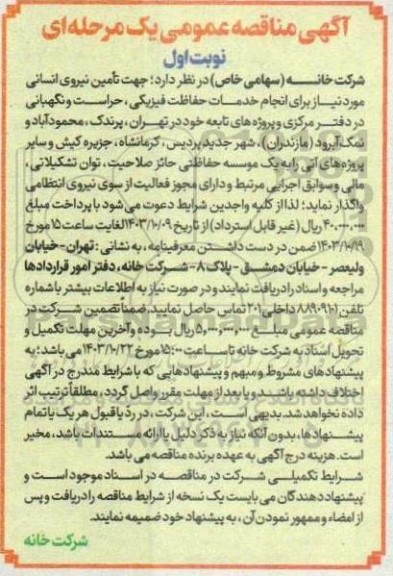 آگهی مناقصه عمومی یک مرحله‌ای
نوبت اول
شرکت خانه (سهامی خاص) در نظر دارد؛ جهت تأمین نیروی انسانی
مورد نیاز برای انجام خدمات حفاظت فیزیکی، حراست و نگهبانی
در دفتر مرکزی و پروژه‌های تابعه خود در تهران، پرندک، محمودآباد و
نمک آبرود (مازندران)، شهر جدید پردیس، کرمانشاه، جزیره کیش و سایر
پروژه‌های آتی را به یک موسسه حفاظتی حائز صلاحیت، توان تشکیلاتی،
مالی و سوابق اجرایی مرتبط و دارای مجوز فعالیت از سوی نیروی انتظامی
واگذار نماید؛ لذا از کلیه واجدین شرایط دعوت می‌شود با پرداخت مبلغ
۴۰،۰۰۰،۰۰۰ ریال (غیر قابل استرداد) از تاریخ ۱۴۰۳/۱۰/۰۹ لغایت ساعت ۱۵ مورخ
۱۴۰۳/۱۰/۱۹ ضمن در دست داشتن معرفینامه، به نشانی: تهران - خیابان
ولیعصر - خیابان دمشق - پلاک ۸ - شرکت خانه، دفتر امور قراردادها
مراجعه و اسناد را دریافت نمایند و در صورت نیاز به اطلاعات بیشتر با شماره
تلفن ۸۸۹۰۹۱۰۱ داخلی ۲۰۱ تماس حاصل نمایید. ضمناً تضمین شرکت در
مناقصه عمومی مبلغ ۵،۰۰۰،۰۰۰،۰۰۰ ریال بوده و آخرین مهلت تکمیل و
تحویل اسناد به شرکت خانه تا ساعت ۱۵:۰۰ مورخ ۱۴۰۳/۱۰/۲۲ می‌باشد؛ به
پیشنهادهای مشروط و مبهم و پیشنهادهایی که با شرایط مندرج در آگهی
اختلاف داشته باشند و یا بعد از مهلت مقرر واصل گردد، مطلقاً ترتیب اثر
داده نخواهد شد. بدیهی است، این شرکت، در رد یا قبول هر یک یا تمام
پیشنهادها، بدون آنکه نیاز به ذکر دلیل یا ارائه مستندات باشد، مخیر
است. هزینه درج آگهی به عهده برنده مناقصه می باشد.
شرایط تکمیلی شرکت در مناقصه در اسناد موجود است و
پیشنهاد دهندگان می بایست یک نسخه از شرایط مناقصه را دریافت و پس
از امضاء و ممهور نمودن آن، به پیشنهاد خود ضمیمه نمایند.
شرکت خانه